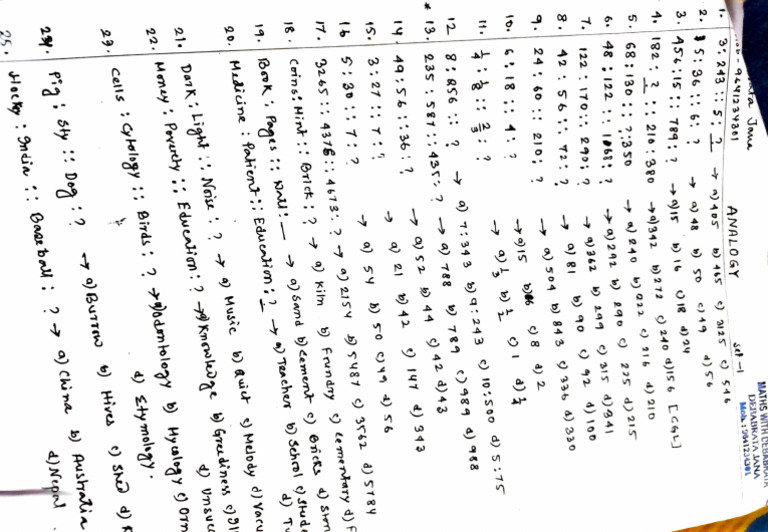 ANALOGY Set-1
MATHS WITH DEBABRATA
DEBABRATA JANA
Mob: 9641234301
Jana
9641234301
1. 3 : 243 :: 5 : ? → a) 405 b) 465 c) 3125 d) 546
2. 5 : 36 :: 6 : ? → a) 48 b) 50 c) 49 d) 56
3. 456 : 15 :: 789 : ? → a) 15 b) 16 c) 18 d) 24
4. 182 : ? :: 210 : 380 → a) 342 b) 272 c) 240 d) 156 [CGL]
5. 68 : 130 :: ? : 350 → a) 240 b) 222 c) 216 d) 210
6. 48 : 122 :: 168 : ? → a) 292 b) 290 c) 225 d) 215
7. 122 : 170 :: 290 : ? → a) 362 b) 299 c) 315 d) 341
8. 42 : 56 :: 72 : ? → a) 81 b) 90 c) 92 d) 100
9. 24 : 60 :: 210 : ? → a) 504 b) 843 c) 336 d) 330
10. 6 : 18 :: 4 : ? → a) 15 b) 16 c) 8 d) 2
11. 1/4 : 1/8 :: 2/3 : ? → a) 1/3 b) 1/2 c) 1 d) 1/4
12 8 : 256 :: ? → a) 7:343 b) 9:243 c) 10:500 d) 5:75
* 13. 235 : 587 :: 435 : ? → a) 788 b) 789 c) 989 d) 988
14. 49 : 56 :: 36 : ? → a) 52 b) 44 c) 42 d) 43
15. 3 : 27 :: 7 : ? → a) 21 b) 42 c) 147 d) 343
16 5 : 30 :: 7 : ? → a) 54 b) 50 c) 49 d) 56
17. 3265 :: 4376 :: 4673 : ? → a) 2154 b) 5487 c) 3562 d) 5784
18. Coins : Mint :: Brick : ? → a) Kiln b) Frundry c) Cementary d)
19. Book : Pages :: Wall : _ → a) Sand b) Cement c) Bricks d)
20. Medicine : Patient :: Education : ? → a) Teacher b) School c) d)
21. Dark : Light :: Noise : ? → a) Music b) Quiet c) Melody d)
22. Money : Poverty :: Education : ? → a) Knowledge b) Greediness c) d)
23. Cells : Cytology :: Birds : ? → a) Odontology b) Mycology c) d) Etymology.
24. Pig : Sty :: Dog : ? → a) Burrow b) Hives c) Shed d)
25. Hockey : India :: Baseball : ? → a) China b) Australia d) Nepal